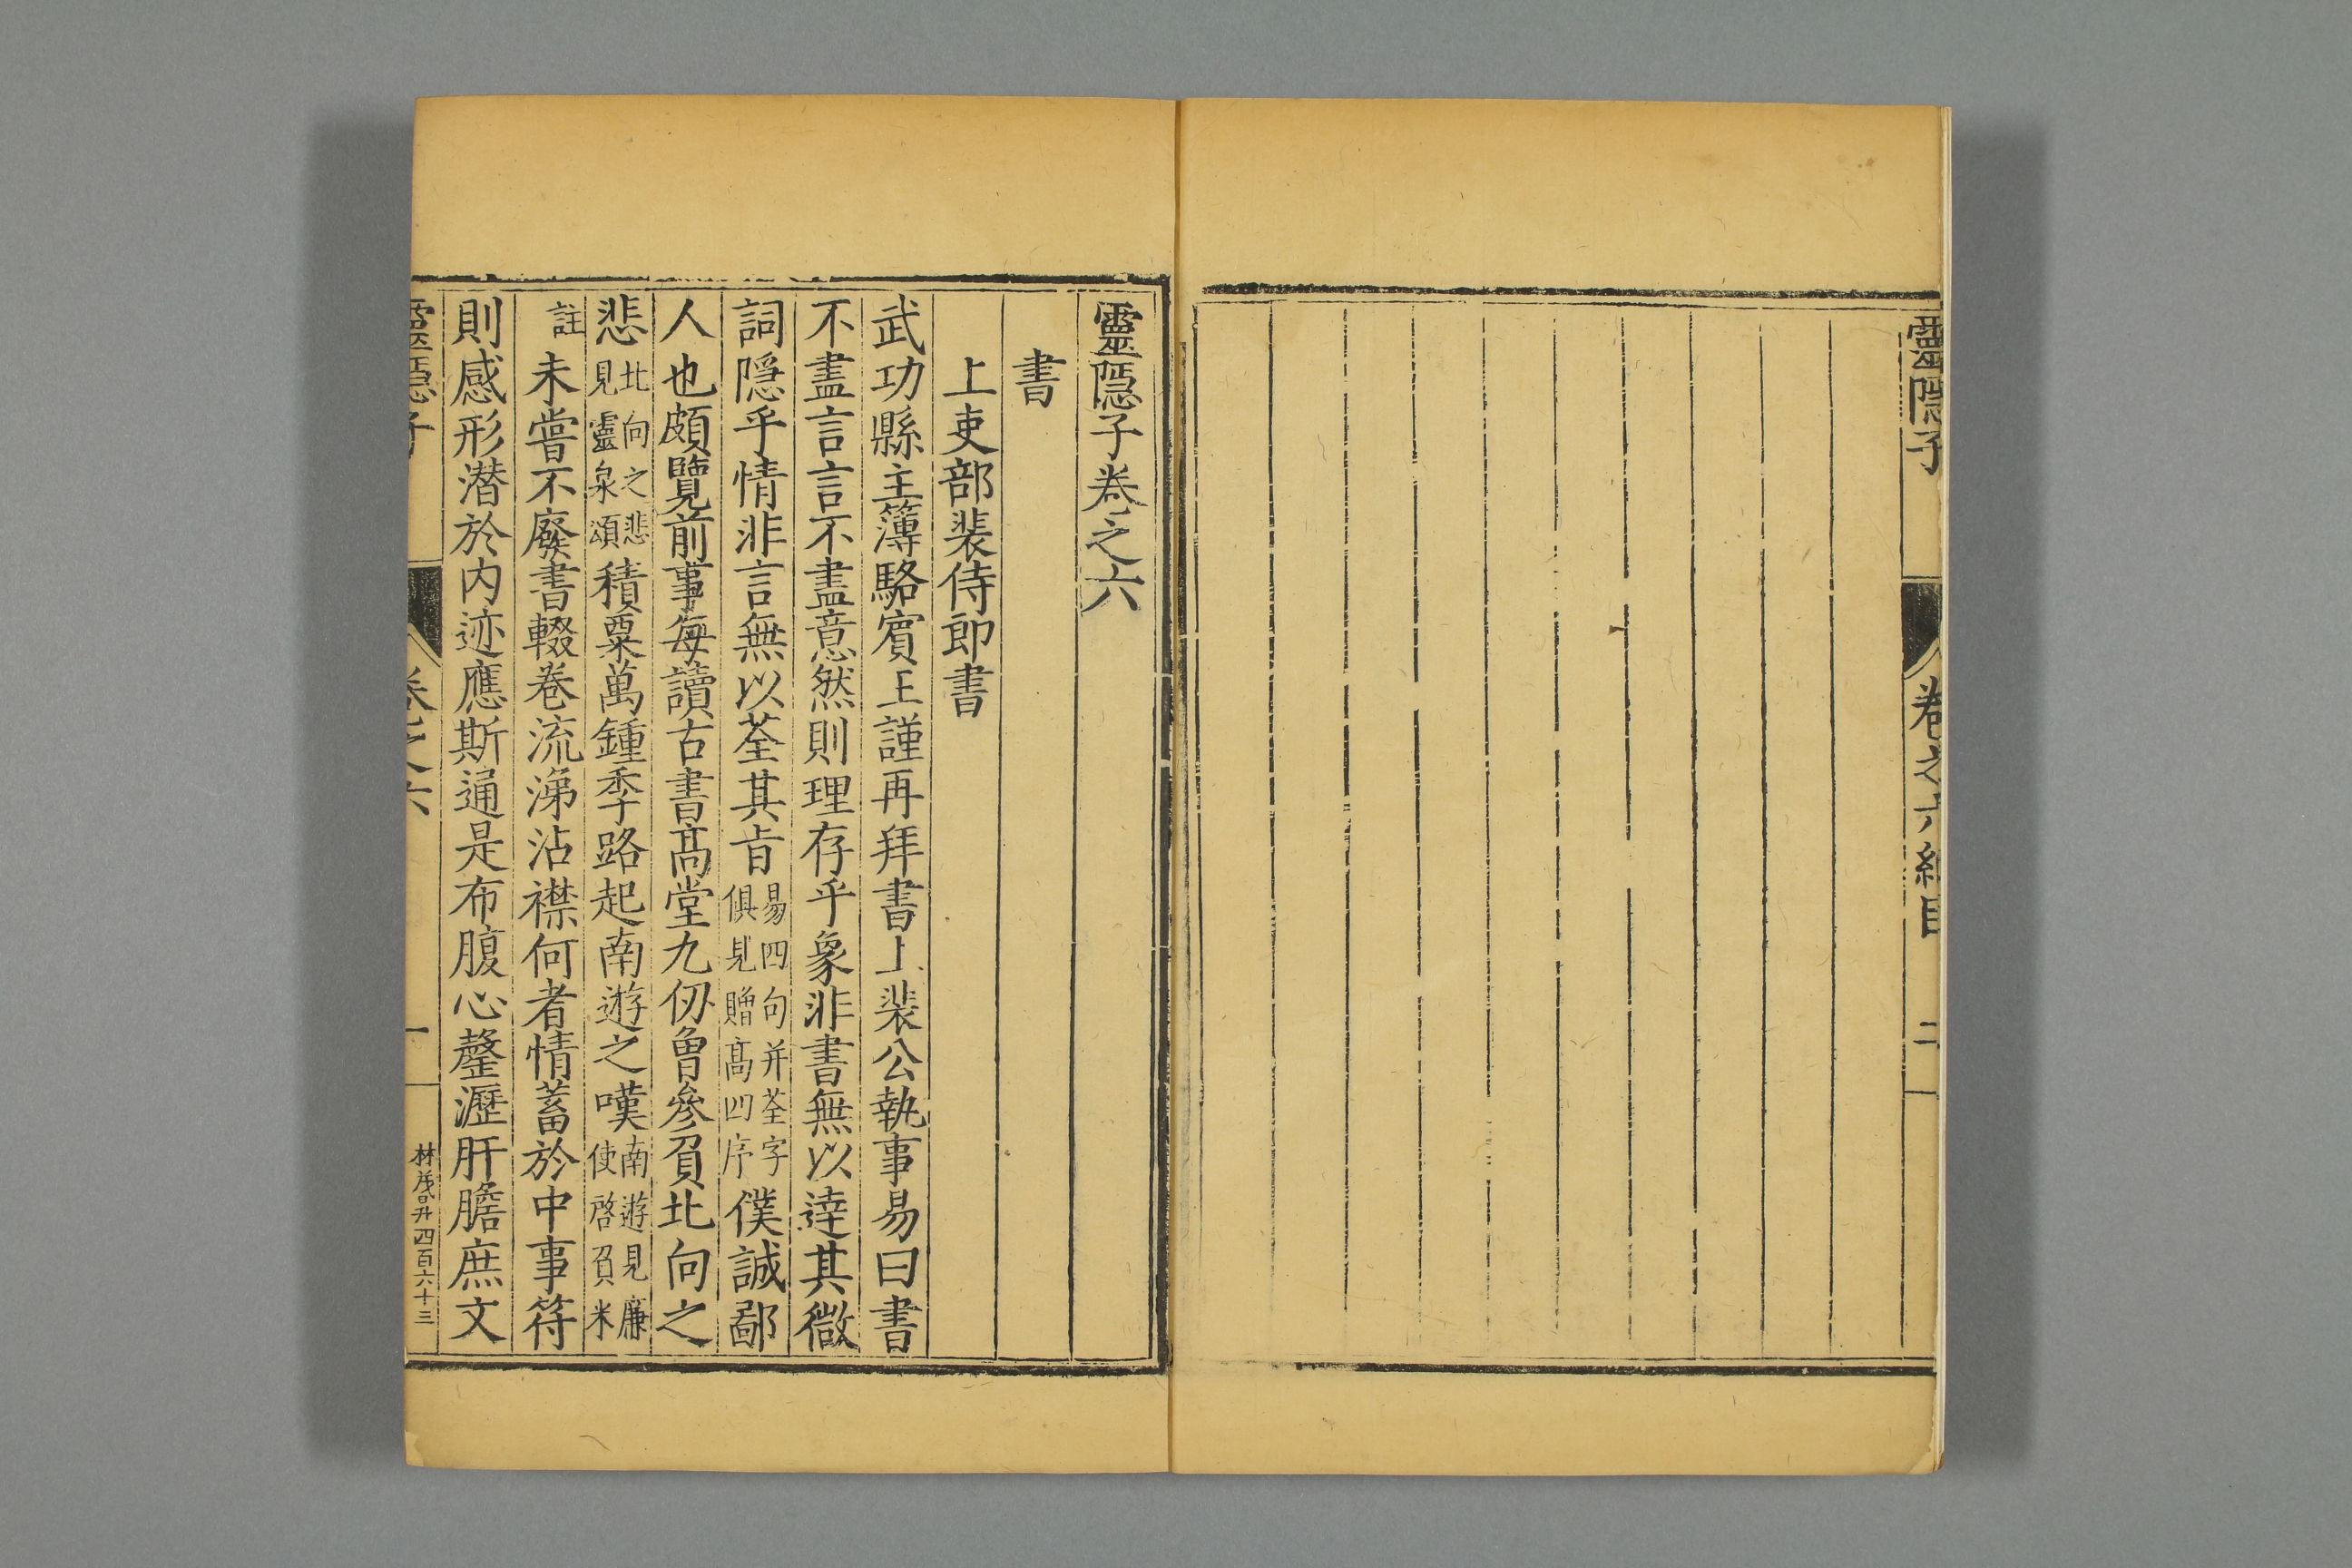 靈隱子
卷之六紬目
二
靈隱子卷之六
書
上吏部裴侍郎書
武功縣主簿駱賓王謹再拜書上裴公執事易曰書
不盡言言不盡意然則理存乎象非書無以達其微
詞隱乎情非言無以荃其㫖易四句并荃字俱見贈高四序僕誠鄙
人也頗覽前事每讀古書高堂九仞曾參負北向之
悲北向之悲見靈泉頌積粟萬鍾季路起南遊之嘆南遊見廉使啓負米
註未嘗不廢書輟卷流涕沾襟何者情蓄於中事符
則感形潜於内迹應斯通是布腹心罄瀝肝膽庶文
靈隱子
卷之六
一
林茂昇四百六十三